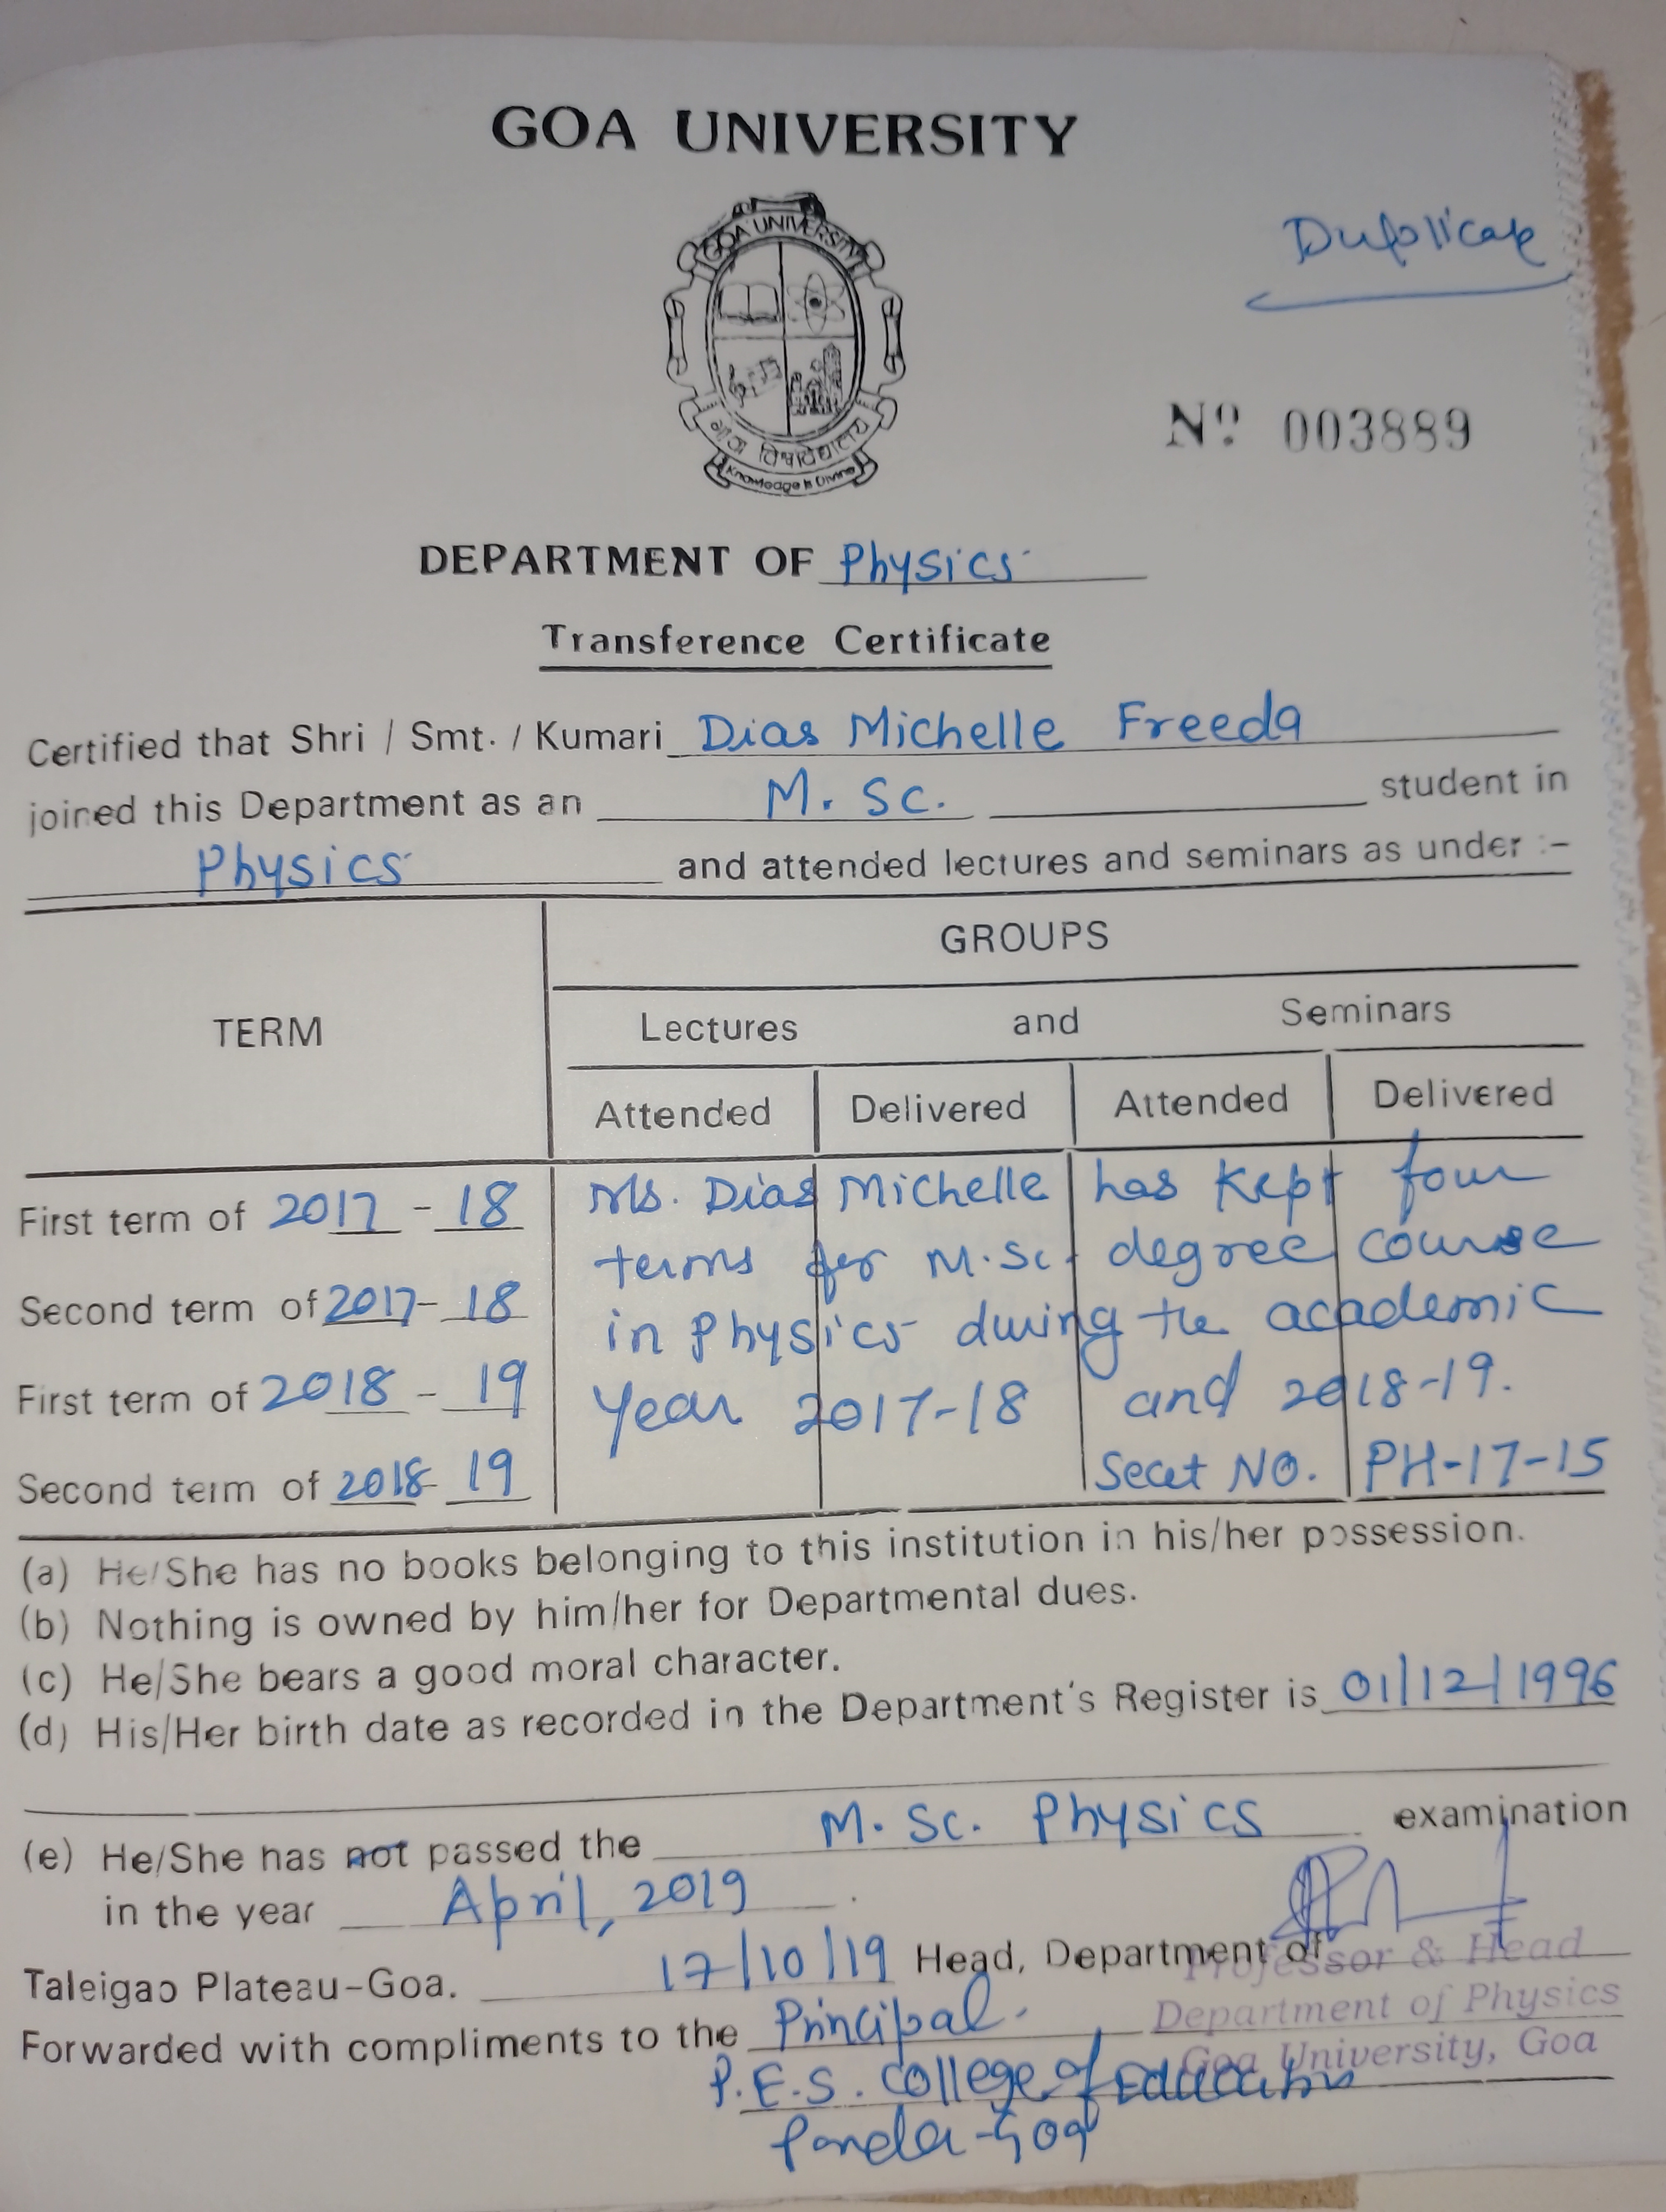 GOA UNIVERSITY
GOA UNIVERSITY
Duplicate
गोंय विश्वविद्यालय
Knowledge is Divine
Nº 003889
DEPARTMENT OF Physics
Transference Certificate
Certified that Shri / Smt. / Kumari Dias Michelle Freeda
joined this Department as an M. Sc. student in
Physics and attended lectures and seminars as under :-
GROUPS
TERM
Lectures and Seminars
Attended Delivered Attended Delivered
First term of 2017 - 18 Ms. Dias Michelle has kept four
terms for M.Sc. degree course
Second term of 2017 - 18
in Physics during the academic
First term of 2018 - 19 Year 2017-18 and 2018-19.
Second term of 2018 19 Seat NO. PH-17-15
(a) He/She has no books belonging to this institution in his/her possession.
(b) Nothing is owned by him/her for Departmental dues.
(c) He/She bears a good moral character.
(d) His/Her birth date as recorded in the Department's Register is 01/12/1996
(e) He/She has not passed the M. Sc. Physics examination
in the year April, 2019
Taleigao Plateau-Goa. 17/10/19 Head, Department of
Professor & Head
Department of Physics
Goa University, Goa
Forwarded with compliments to the Principal.
P.E.S. College of Education
Ponda-Goa